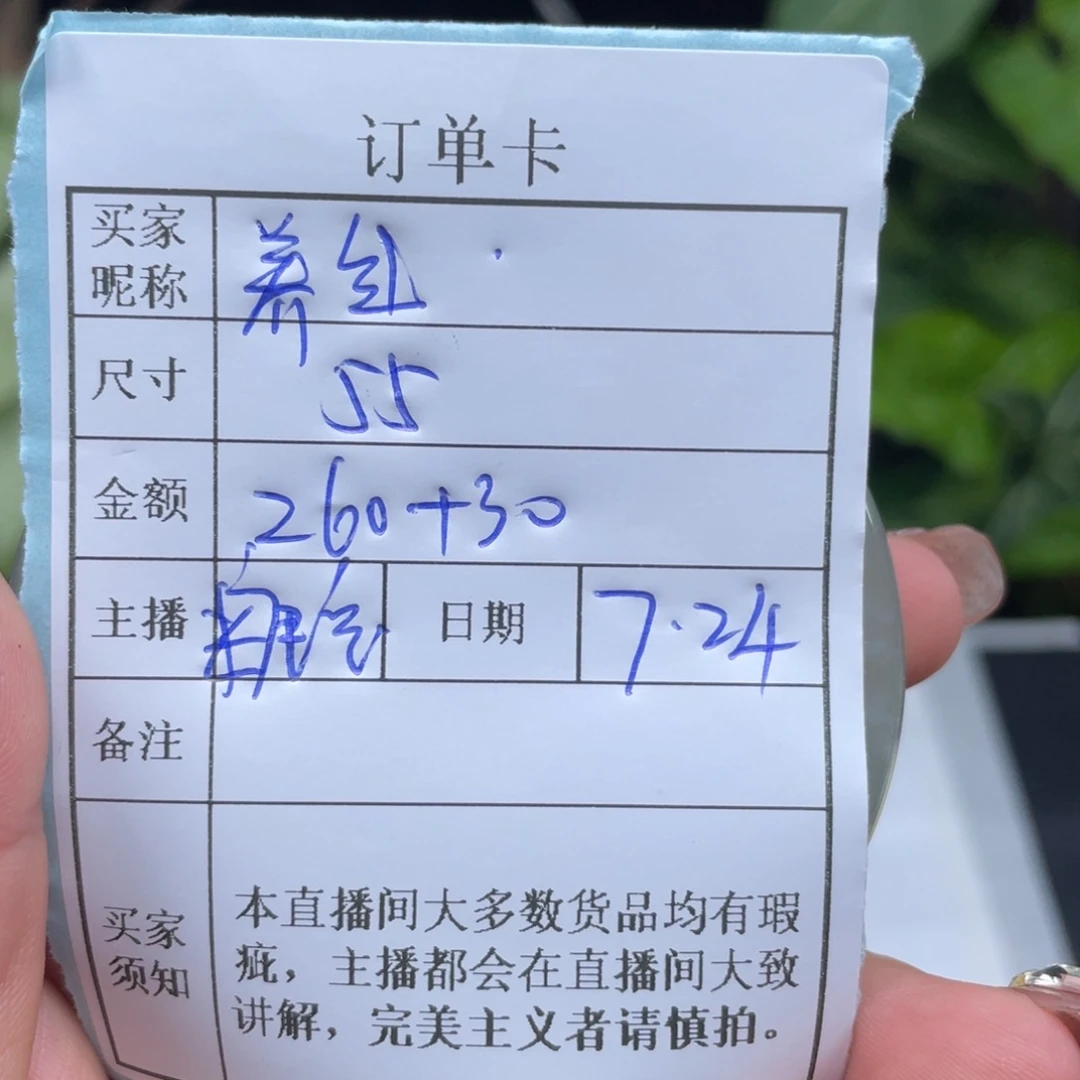 订单卡
买家昵称 养
尺寸 55
金额 260+30
主播 日期 7.24
备注
买家须知 本直播间大多数货品均有瑕
疵，主播都会在直播间大致
讲解，完美主义者请慎拍。